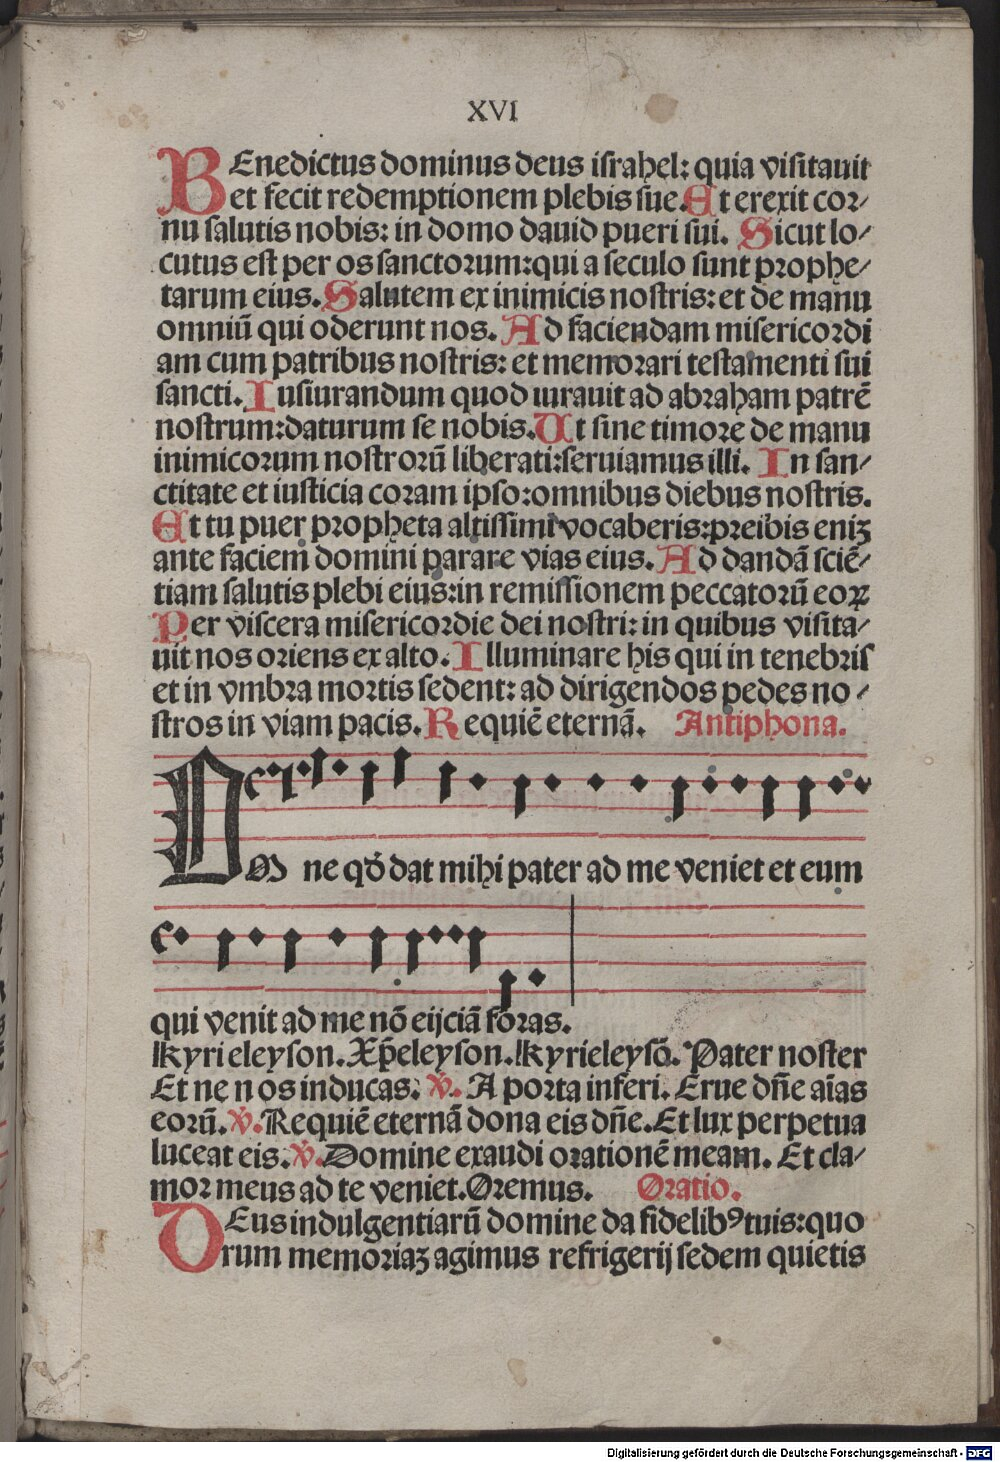 XVI
BEnedictus dominus deus israhel: quia visitauit
et fecit redemptionem plebis sue. Et erexit cor⸗
nu salutis nobis: in domo dauid pueri sui. Sicut lo⸗
cutus est per os sanctorum: qui a seculo sunt prophe⸗
tarum eius. Salutem ex inimicis nostris: et de manu
omniū qui oderunt nos. Ad faciendam misericordi
am cum patribus nostris: et memorari testamenti sui
sancti. Iusiurandum quod iurauit ad abraham patrē
nostrum: daturum se nobis. Ut sine timore de manu
inimicorum nostrorū liberati: seruiamus illi. In san⸗
ctitate et iusticia coram ipso: omnibus diebus nostris.
Et tu puer propheta altissimi vocaberis: preibis eniꝫ
ante faciem domini parare vias eius. Ad dandā sciē⸗
tiam salutis plebi eius: in remissionem peccatorū eoꝝ
Per viscera misericordie dei nostri: in quibus visita⸗
uit nos oriens ex alto. Illuminare his qui in tenebris
et in vmbra mortis sedent: ad dirigendos pedes no⸗
stros in viam pacis. Requiē eternā. Antiphona.
Om ne qđ dat mihi pater ad me veniet et eum
qui venit ad me nō eijciā foras.
Kyri eleyson. Xp̄eleyson. Kyrieleysō. Pater noster
Et ne nos inducas. ℣. A porta inferi. Erue dn̄e aīas
eorū. ℣. Requiē eternā dona eis dn̄e. Et lux perpetua
luceat eis. ℣. Domine exaudi orationē meam. Et cla⸗
mor meus ad te veniet. Oremus. Oratio.
DEus indulgentiarū domine da fidelibꝰ tuis: quo
rum memoriaꝫ agimus refrigerij sedem quietis
Digitalisierung gefördert durch die Deutsche Forschungsgemeinschaft - DFG